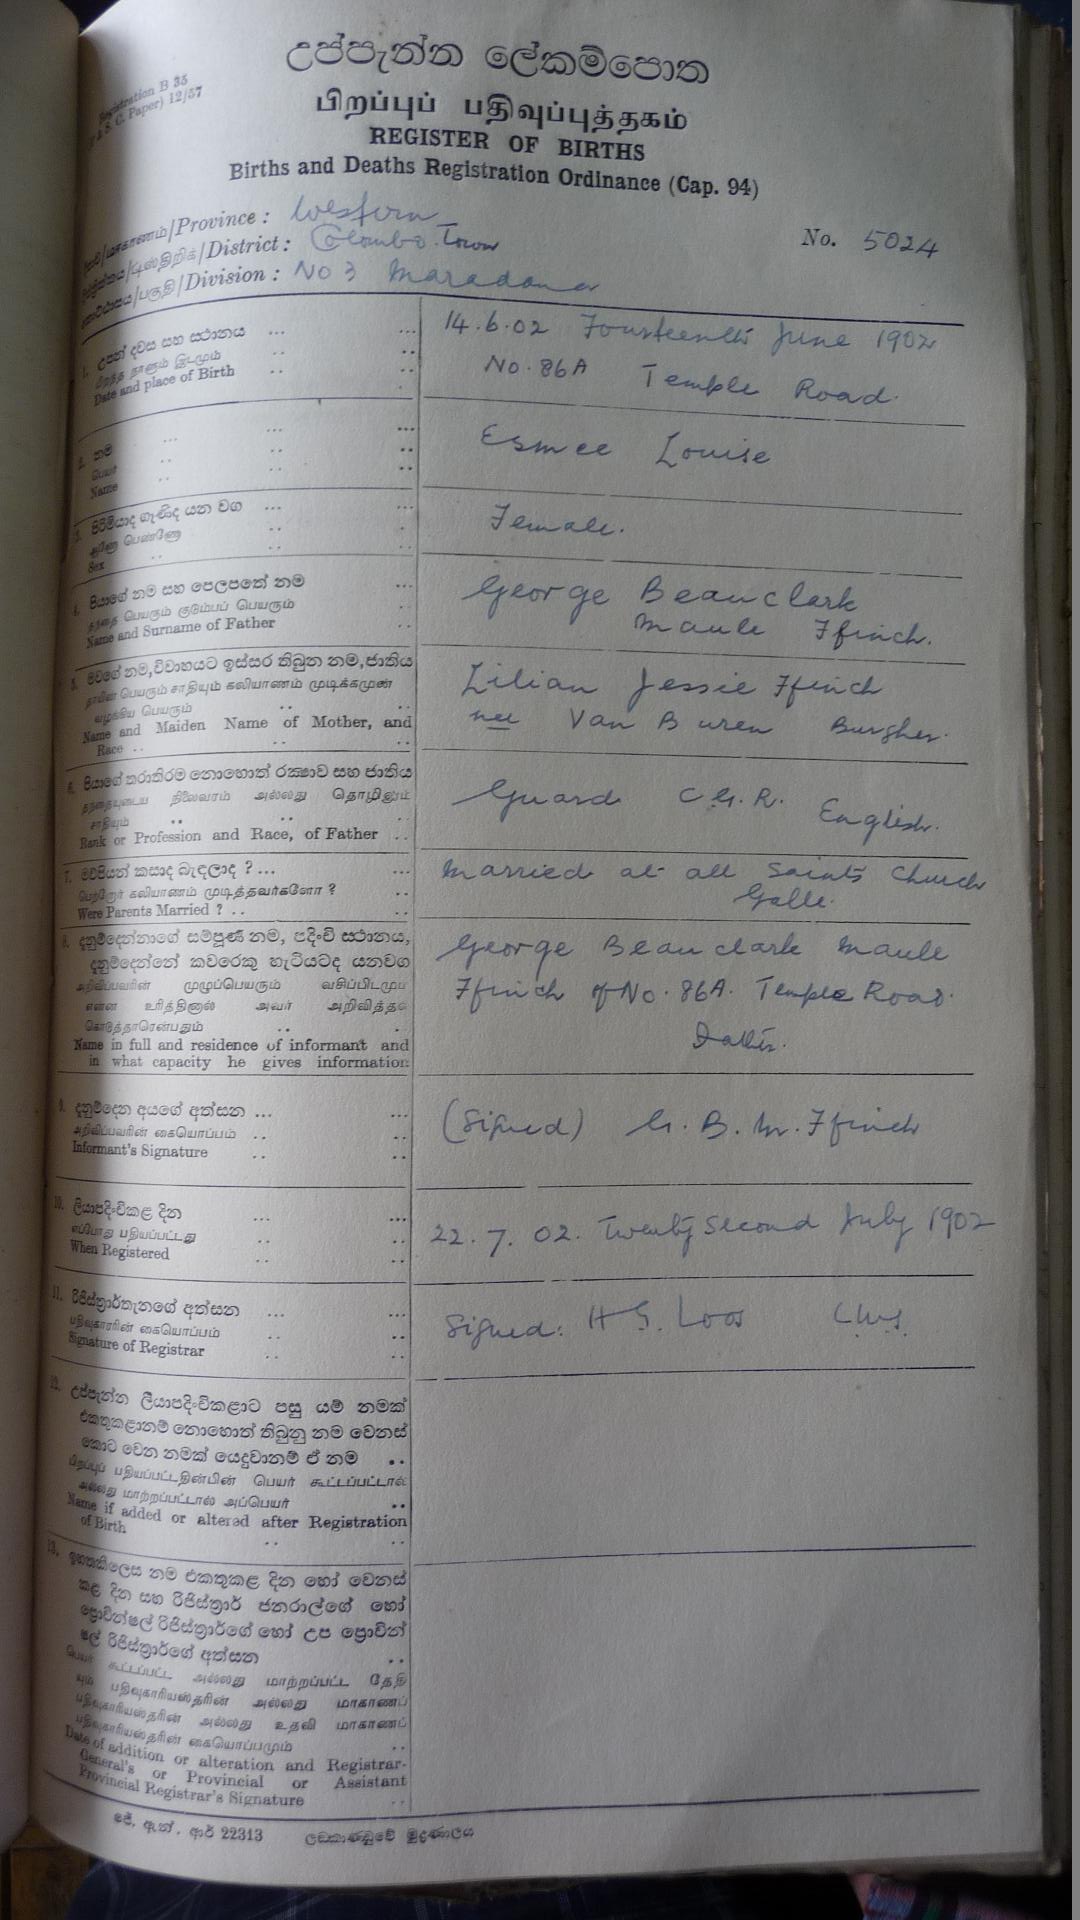 උප්පැන්න ලේකම්පොත
பிறப்புப் பதிவுப்புத்தகம்
REGISTER OF BIRTHS
Births and Deaths Registration Ordinance (Cap. 94)
Registration B 35
S. C. Paper) 12/57
Province : Western
District : Colombo Town
Division : No 3 Maradana
No. 5024
1. උපන් දවස සහ ස්ථානය ... ...
பிறந்த நாளும் இடமும் .. ..
Date and place of Birth .. .
14.6.02 Fourteenth June 1902
No. 86A Temple Road.
2. නම ... ... ...
பெயர் .. .. ..
Name .. .. ..
Esmee Louise
3. පිරිමියාද ගැණිද යන වග ... ...
ஆணோ பெண்ணோ .. .
Sex .. .. .
Female.
4. පියාගේ නම සහ පෙලපතේ නම ...
தந்தை பெயரும் குடும்பப் பெயரும் .
Name and Surname of Father ..
George Beauclark
Maule Ffinch.
5. මවගේ නම, විවාහයට ඉස්සර තිබුන නම, ජාතිය
தாயின் பெயரும் சாதியும் கலியாணம் முடிக்கமுன்
வழங்கிய பெயரும் .. ..
Name and Maiden Name of Mother, and
Race .. .. ..
Lilian Jessie Ffinch
nee Van Buren Burgher.
6. පියාගේ තරාතිරම නොහොත් රක්ෂාව සහ ජාතිය
தந்தையுடைய நிலைவரம் அல்லது தொழிலும்
சாதியும் .. .. ..
Rank or Profession and Race, of Father ..
Guard C.G.R. English.
7. මව්පියන් කසාද බැඳලාද ? ... ...
பெற்றோர் கலியாணம் முடித்தவர்களோ ? ..
Were Parents Married ? .. ..
Married at all Saints Church
Galle.
8. දැනුම්දෙන්නාගේ සම්පූර්ණ නම, පදිංචි ස්ථානය,
දැනුම්දෙන්නේ කවරෙකු හැටියටද යනවග
அறிவிப்பவரின் முழுப்பெயரும் வசிப்பிடமும்
என்ன உரித்தினால் அவர் அறிவித்தல்
கொடுத்தாரென்பதும் .. .
Name in full and residence of informant and
in what capacity he gives information
George Beauclark Maule
Ffinch of No. 86A. Temple Road.
Father.
9. දැනුම්දෙන අයගේ අත්සන ... ...
அறிவிப்பவரின் கையொப்பம் .. ..
Informant's Signature .. ..
(Signed) G. B. M. Ffinch
10. ලියාපදිංචිකළ දින ... ...
எப்போது பதியப்பட்டது .. ..
When Registered .. ..
22. 7. 02. Twenty Second July 1902
11. රිජිස්ත්‍රාර්තැනගේ අත්සන ... ...
பதிவுகாரரின் கையொப்பம் .. ..
Signature of Registrar .. ..
Signed: H S. Loos
12. උප්පැන්න ලියාපදිංචිකළාට පසු යම් නමක්
එකතුකළානම් නොහොත් තිබුනු නම වෙනස්
කොට වෙන නමක් යෙදුවානම් ඒ නම ..
பிறப்புப் பதியப்பட்டதின்பின் பெயர் கூட்டப்பட்டால்
அல்லது மாற்றப்பட்டால் அப்பெயர் ..
Name if added or altered after Registration
of Birth .. ..
13. ඉහතකිලෙස නම එකතුකළ දින හෝ වෙනස්
කළ දින සහ රිජිස්ත්‍රාර් ජනරාල්ගේ හෝ
ප්‍රොවින්ෂල් රිජිස්ත්‍රාර්ගේ හෝ උප ප්‍රොවින්
ෂල් රිජිස්ත්‍රාර්ගේ අත්සන ..
பெயர் கூட்டப்பட்ட அல்லது மாற்றப்பட்ட தேதி
யும் பதிவுகாரியஸ்தரின் அல்லது மாகாணப்
பதிவுகாரியஸ்தரின் அல்லது உதவி மாகாணப்
பதிவுகாரியஸ்தரின் கையொப்பமும் ..
Date of addition or alteration and Registrar-
General's or Provincial or Assistant
Provincial Registrar's Signature ..
ජේ. ඇන්. ආර් 22313 ලඞකාණ්ඩුවේ මුද්‍රණාලය